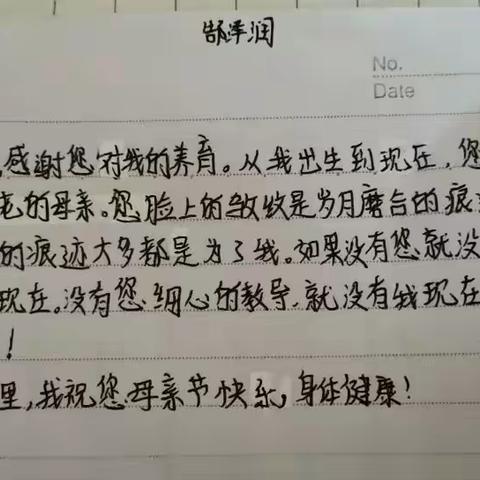 郜泽润
No.
Date
感谢您对我的养育。从我出生到现在,您
的母亲。您脸上的皱纹是岁月磨合的痕
的痕迹大多都是为了我。如果没有您就没
现在。没有您细心的教导,就没有我现在
!
里,我祝您母亲节快乐,身体健康!